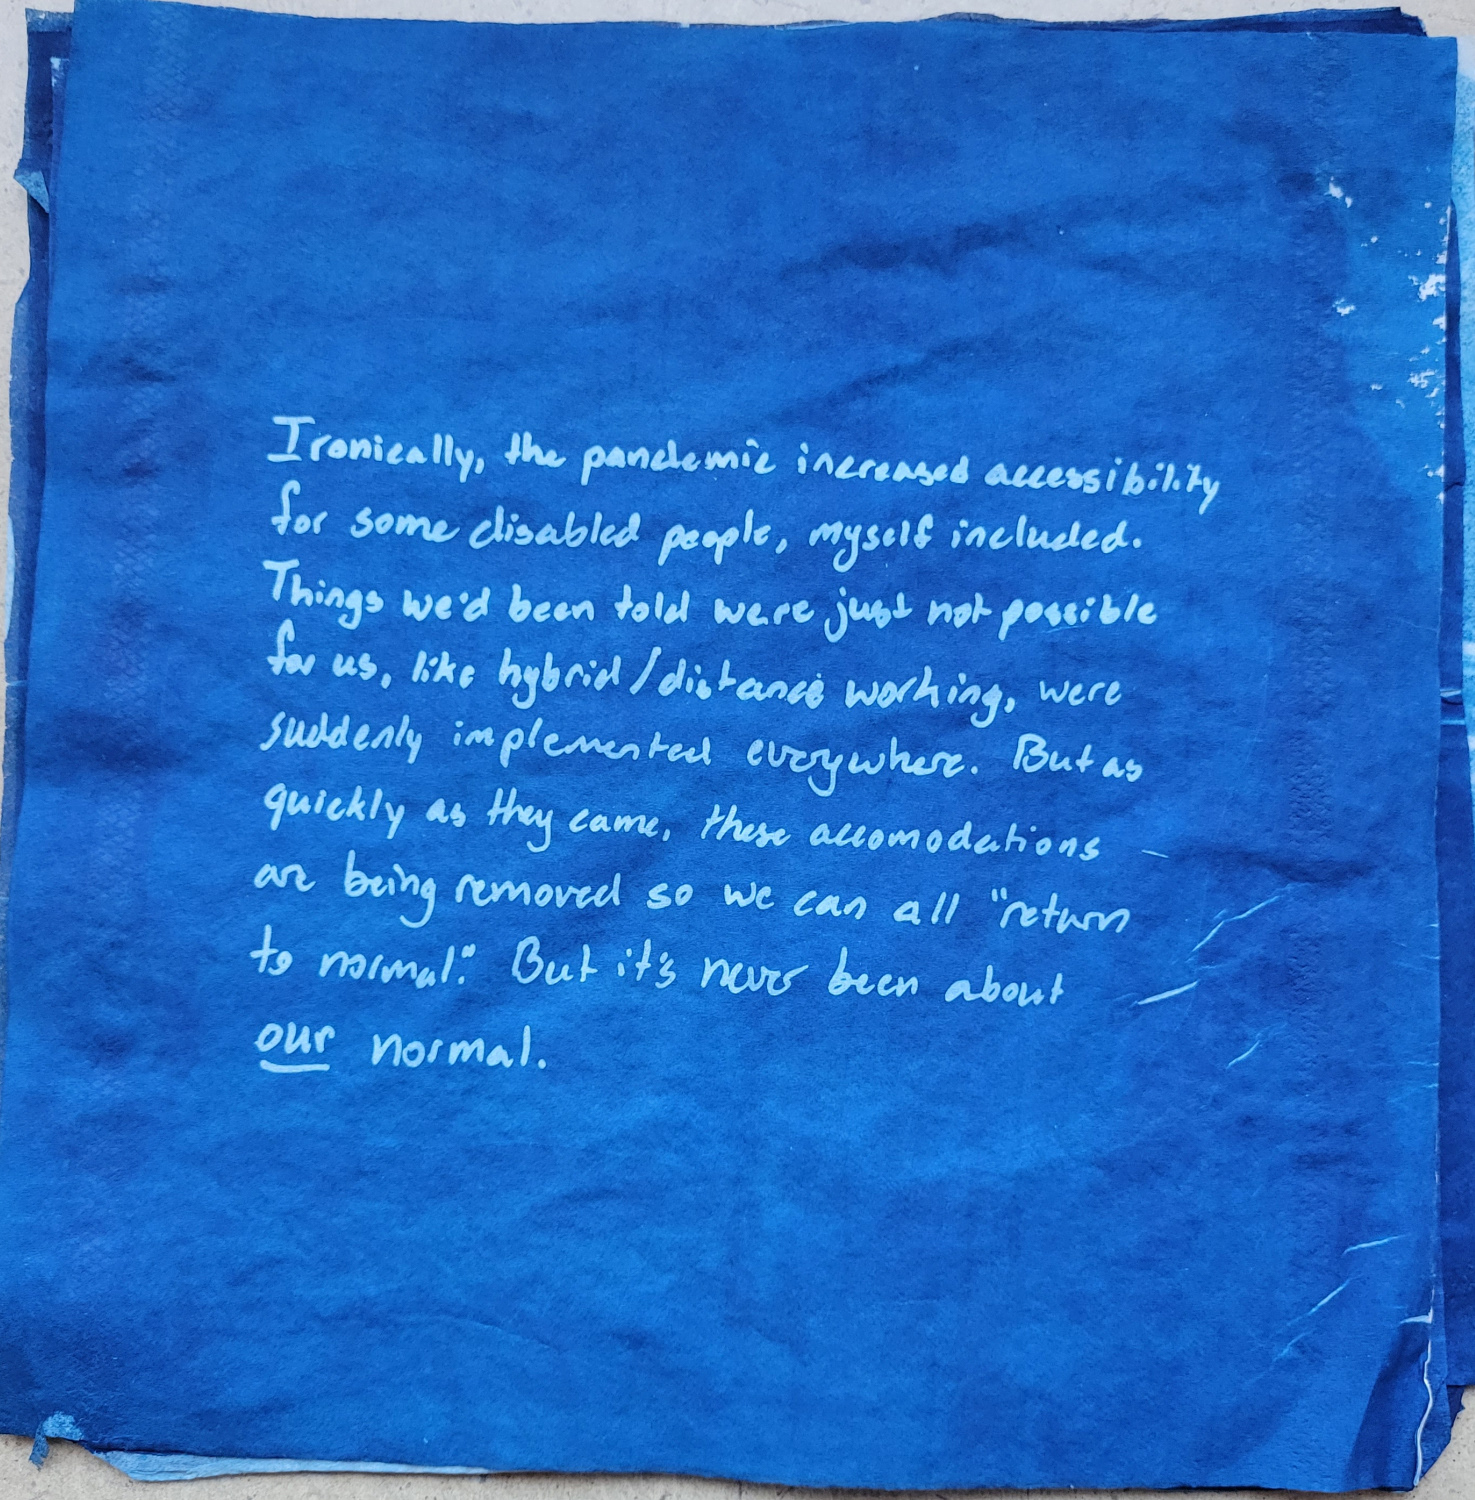 Ironically, the pandemic increased accessibility
for some disabled people, myself included.
Things we'd been told were just not possible
for us, like hybrid/distance working, were
suddenly implemented everywhere. But as
quickly as they came, these accomodations
are being removed so we can all "return
to normal". But it's never been about
our normal.